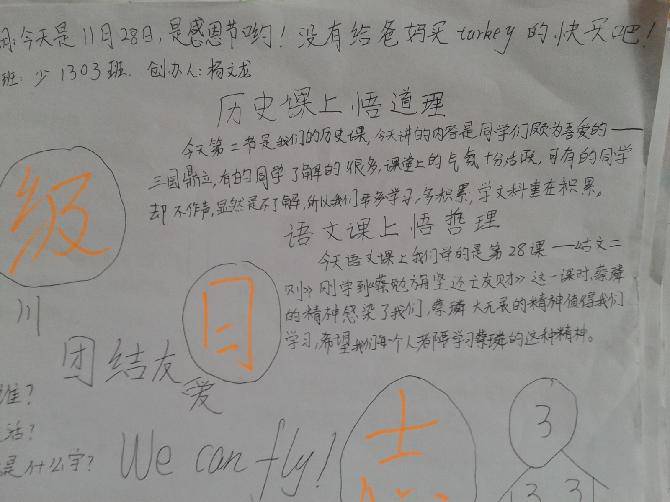 今天是11月28日,是感恩节哟!没有给爸妈买turkey的,快买吧!
班:少1303班. 创办人:杨文龙
历史课上悟道理
今天第二节是我们的历史课,今天讲的内容是同学们颇为喜爱的——
三国鼎立,有的同学了解的很多,课堂上的气氛十分活跃,可有的同学
却不作声,显然是不了解,所以我们要多学习,多积累,学文科重在积累。
级
语文课上悟哲理
今天语文课上我们讲的是第28课——《
文二
则》刚学到《蔡勉旃坚还亡友财》这一课时,蔡璘
的精神感染了我们,蔡璘大无畏的精神值得我们
学习,希望我们每个人都学习蔡璘的这种精神。
川
日
团结友
爱
谁?
活?
是什么字?
We can fly!
志
3
3 3